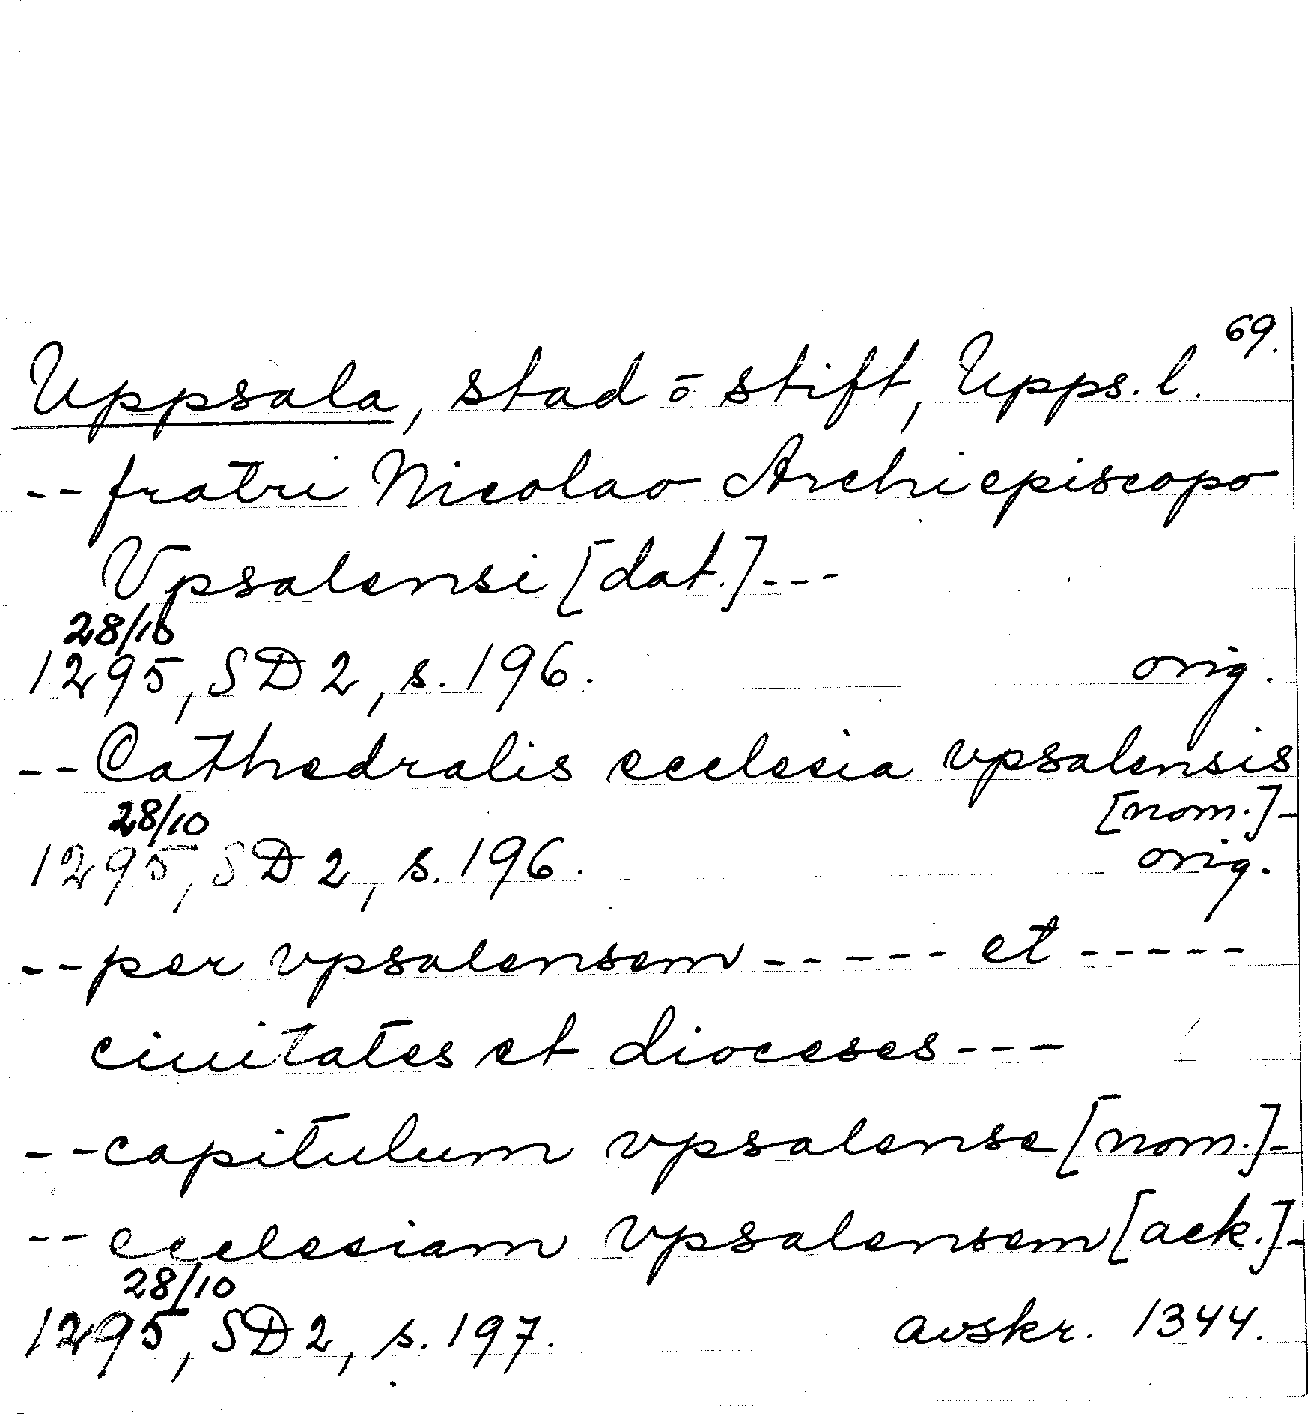 69.
Uppsala, stad o stift, Upps. l.
-- fratri Nicolao Archiepiscopo
Vpsalensi [dat.] ---
28/10
1295, SD 2, s. 196. orig.
-- Cathedralis ecclesia vpsalensis
[nom.]-
28/10
1295, SD 2, s. 196. orig.
-- per vpsalensem ----- et -----
ciuitates et dioceses ---
-- capitulum vpsalense [nom.]-
-- ecclesiam vpsalensem [ack.]-
28/10
1295, SD 2, s. 197. avskr. 1344.